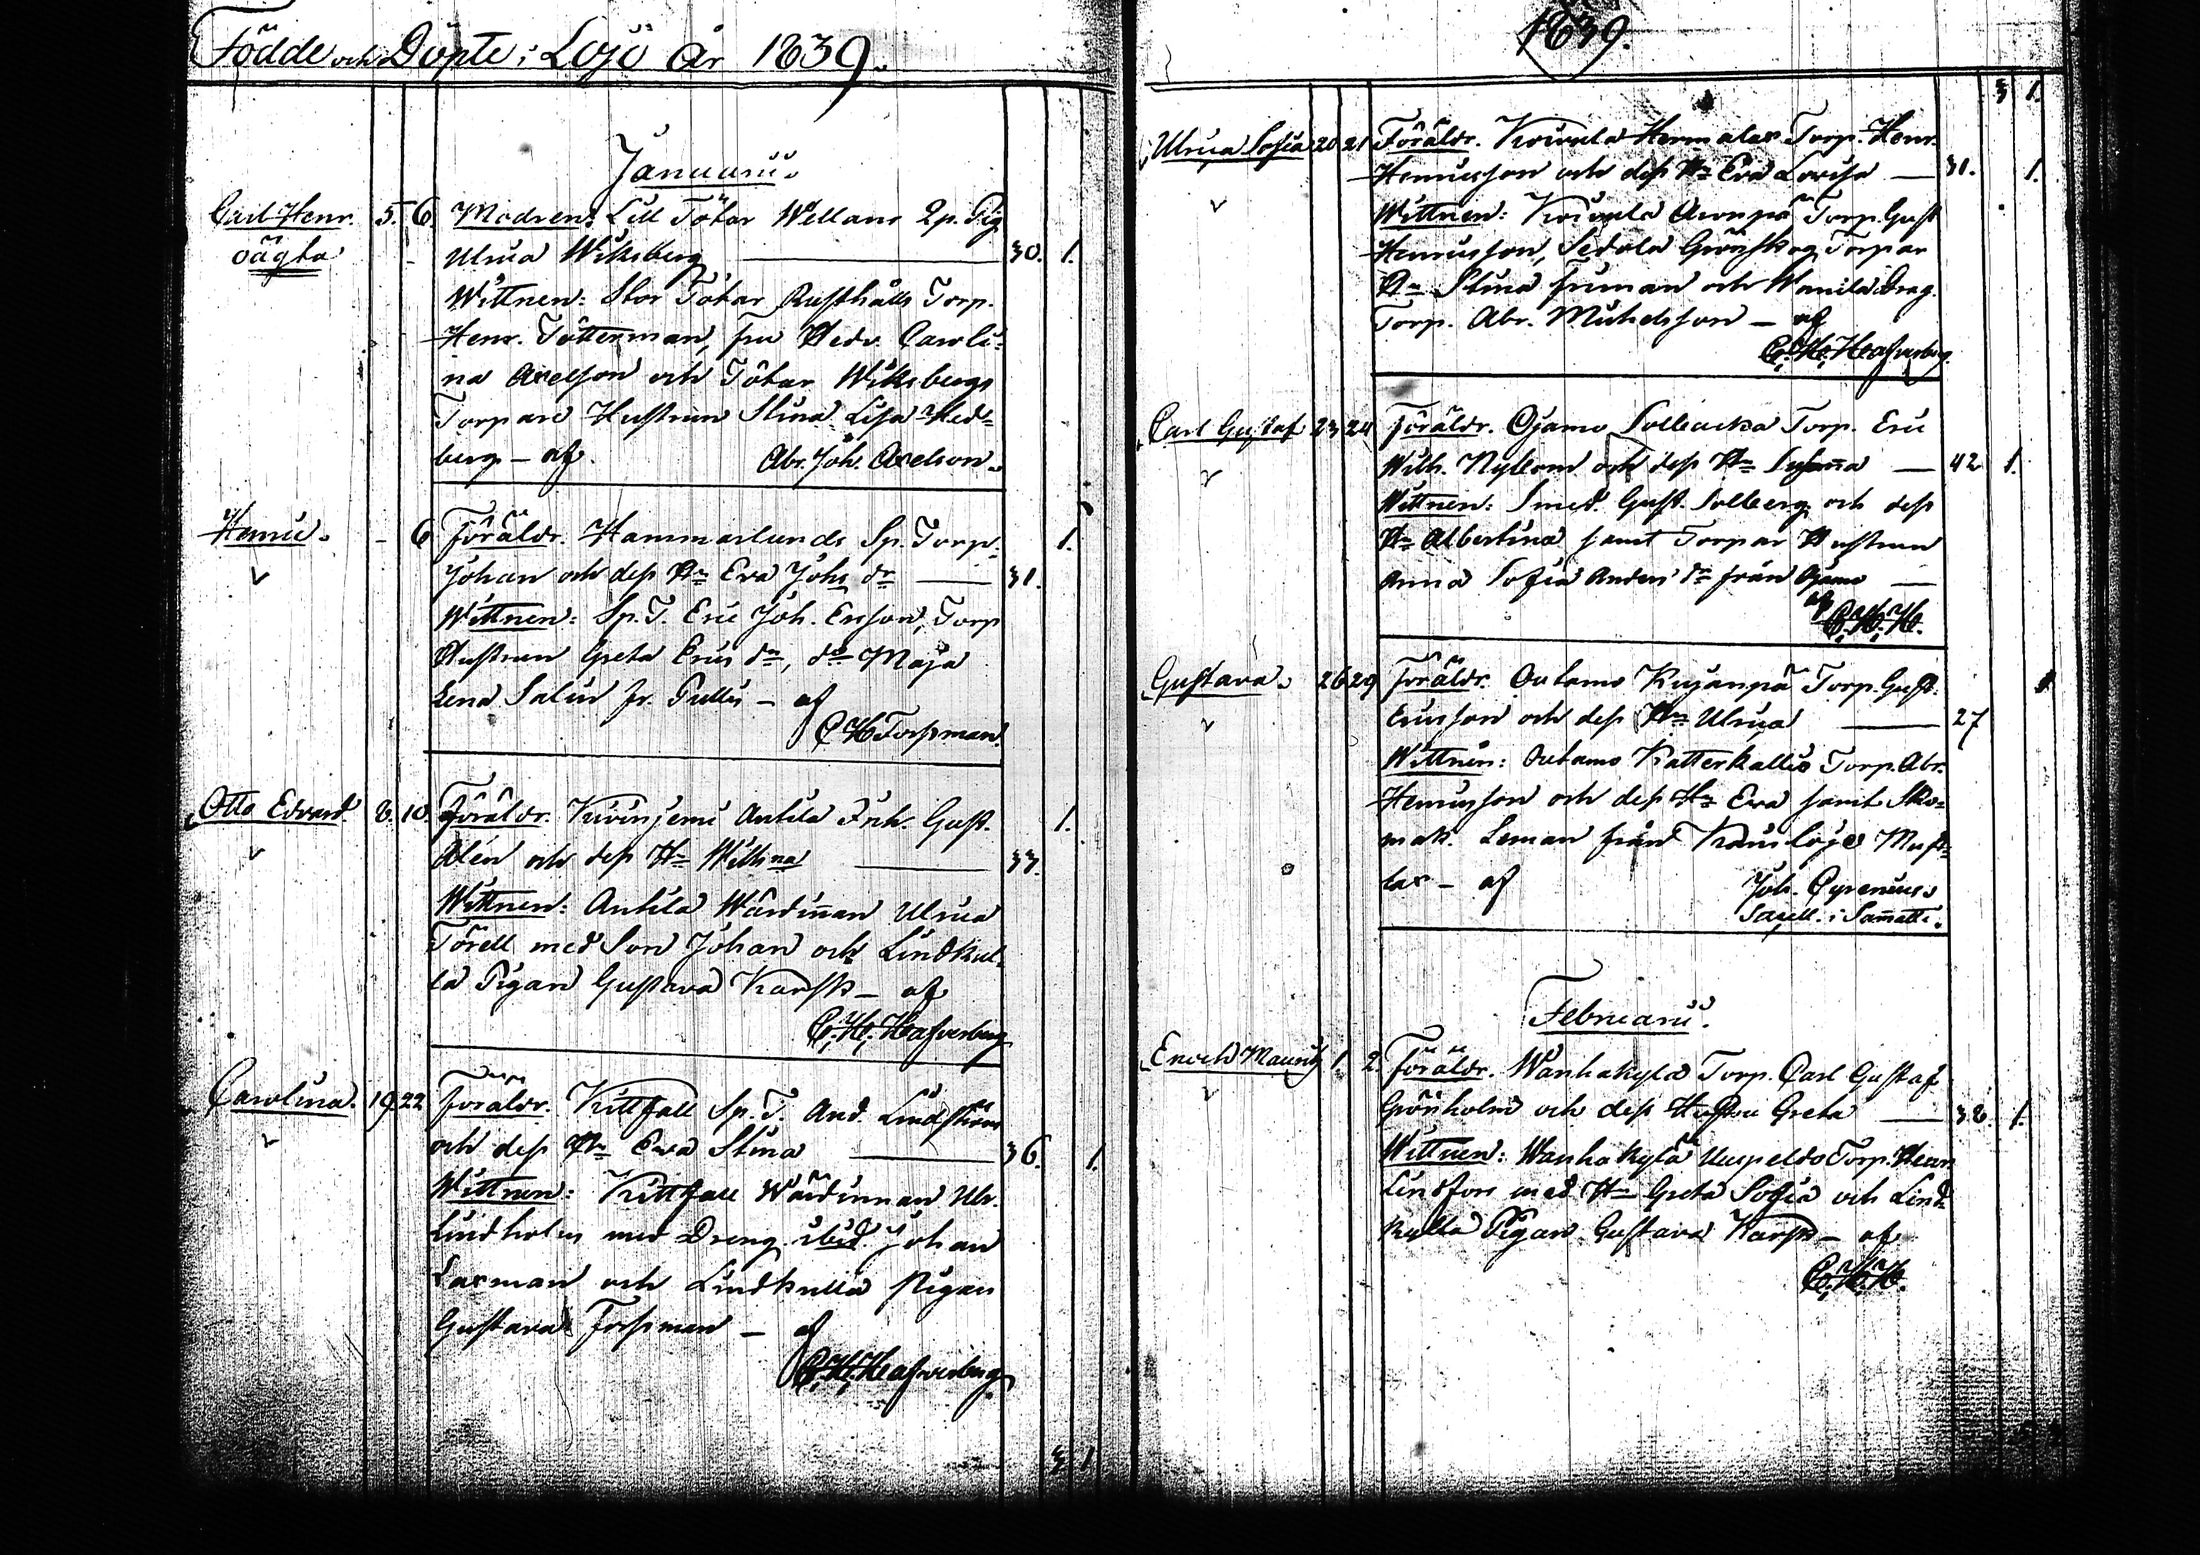 Födde och Döpte i Lojo år 1839.
Januarii.
Carl Henr. 5. 6. Modren: Lill Tötar Wellans 2 p. Pig
oägta Ulrica Wiksberg 30. 1.
Wittnen: Stor Tötar Rusthålls Torp.
Henr. Tötterman, fru Hedv. Caroli-
na Axelson och Tötar Wiksbergs
Torpare Hustrun Stina Lisa Hed-
berg - af. Abr. Joh. Axelson.
Henric. - 6 Föräldr. Hammarlunds Sp. Torp. 1.
Johan och dess Hu Eva Johs dr 31.
Wittnen: Sp. T. Eric Joh. Ersson, Torp
Hustrun Greta Erics dr, do Maja
Lena Salin fr. Pullis - af
C H Forssman.
Otto Edvard 8. 10. Föräldr. Kivinjemi Antila Inh. Gust. 1.
Alén och dess Hu Wilhna 33.
Wittnen: Antila Wärdinnan Ulrica
Törell med Son Johan och Lindkul-
la Pigan Gustava Karsk - af
C. H. Hafverberg
Carolina. 19 22 Föräldr. Kittfall Sp. T. And. Lindström
och dess Hu Eva Stina 36. 1.
Wittnen: Kittfall Wärdinnan Ulr.
Lindholm med Dreng ibid. Johan
Laxman och Lindkulla pigan
Gustava Forssman - af
C. H. Hafverberg
3 1
1839.
3 1.
Ulrica Sofia 20 21 Föräldr. Koivula Hermalax Torp. Henr.
Henricsson och dess Hu Eva Lovisa 31. 1.
Wittnen: Koivula Aronpä Torp. Gust
Henricsson, Sedola Grönskog Torpar
Hu Stina Juman och Wanila Dreg.
Torp. Abr. Michelsson - af
C. H. Hafverberg.
Carl Gustaf 23 24 Föräldr. Ojamo Solbacka Torp. Eric
Wilh. Nybom och dess Hu Susanna 42 1.
Wittnen: Smed. Gust. Solberg och dess
Hu Albertina samt Torpar Hustrun
Anna Sofia Anders dr från Ojamo
af C. H. H.
Gustava. 26 29 Föräldr. Outamo Kujanpä Torp. Gust. 1
Ericsson och dess Hu Ulrica 27
Wittnen: Outamo Katterkallio Torp. Abr.
Henricsson och dess Hu Eva samt Sko-
mak. Leman från Karislojo Must-
lax - af Joh. Cyrenius
Sacell. i Sammatti.
Februarii.
Enoch Mauritz 1. 2. Föräldr. Wanhakylä Torp. Carl Gustaf
Grönholm och dess Hustru Greta 38. 1.
Wittnen: Wanhakylä Uuspeldo Torp. Henr
Lindfors med Hu Greta Sofia och Lind-
kulla Pigan Gustava Karsk - af
C. H. H.